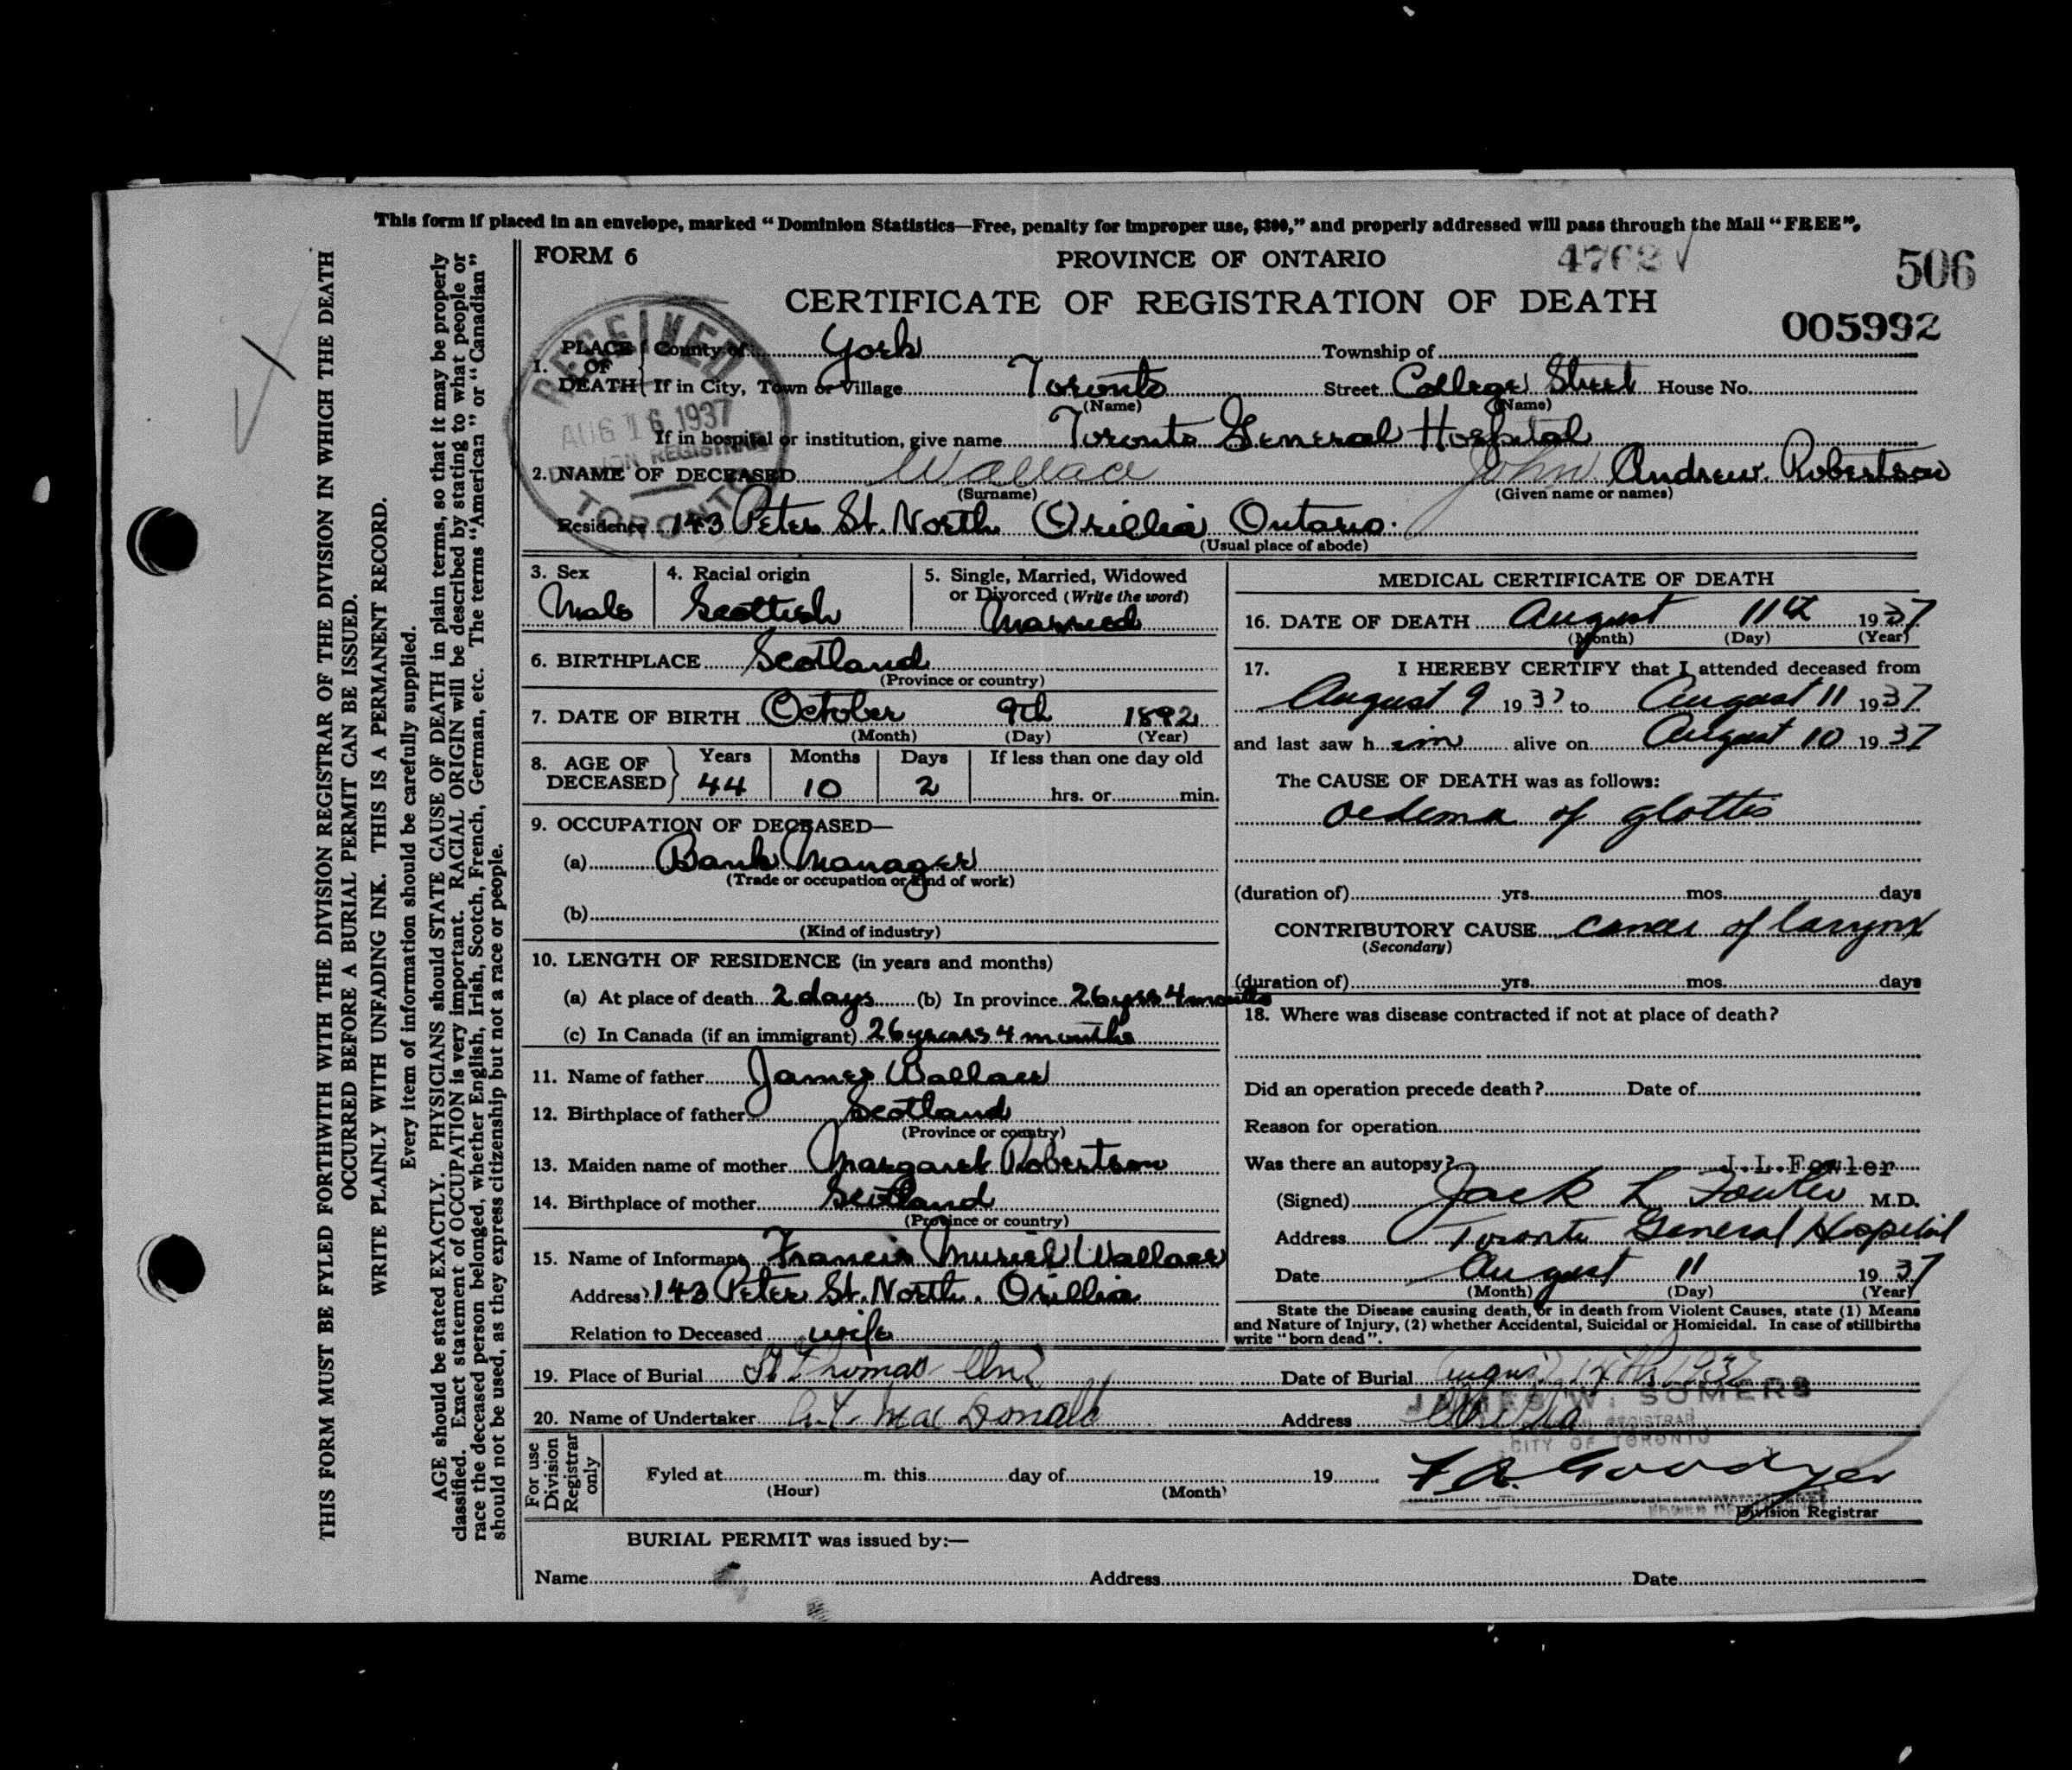 This form if placed in an envelope, marked "Dominion Statistics—Free, penalty for improper use, $300," and properly addressed will pass through the Mail "FREE".
THIS FORM MUST BE FYLED FORTHWITH WITH THE DIVISION REGISTRAR OF THE DIVISION IN WHICH THE DEATH
OCCURRED BEFORE A BURIAL PERMIT CAN BE ISSUED.
WRITE PLAINLY WITH UNFADING INK. THIS IS A PERMANENT RECORD.
Every item of information should be carefully supplied.
AGE should be stated EXACTLY. PHYSICIANS should STATE CAUSE OF DEATH in plain terms, so that it may be properly
classified. Exact statement of OCCUPATION is very important. RACIAL ORIGIN will be described by stating to what people or
race the deceased person belonged, whether English, Irish, Scotch, French, German, etc. The terms "American" or "Canadian"
should not be used, as they express citizenship but not a race or people.
FORM 6 PROVINCE OF ONTARIO 4762 506
CERTIFICATE OF REGISTRATION OF DEATH
005992
RECEIVED
AUG 16 1937
DIVISION REGISTRAR
TORONTO
1. PLACE OF DEATH County of York Township of
If in City, Town or Village Toronto Street College Street House No.
(Name) (Name)
If in hospital or institution, give name Toronto General Hospital
2. NAME OF DECEASED Wallace John Andrew Robertson
(Surname) (Given name or names)
Residence 143 Peter St. North Orillia Ontario.
(Usual place of abode)
3. Sex Male
4. Racial origin Scottish
5. Single, Married, Widowed or Divorced (Write the word) Married
6. BIRTHPLACE Scotland
(Province or country)
7. DATE OF BIRTH October 9th 1892
(Month) (Day) (Year)
8. AGE OF DECEASED Years Months Days If less than one day old
44 10 2 hrs. or min.
9. OCCUPATION OF DECEASED—
(a) Bank Manager
(Trade or occupation or kind of work)
(b)
(Kind of industry)
10. LENGTH OF RESIDENCE (in years and months)
(a) At place of death 2 days (b) In province 26 yrs 4 months
(c) In Canada (if an immigrant) 26 years 4 months
11. Name of father James Wallace
12. Birthplace of father Scotland
(Province or country)
13. Maiden name of mother Margaret Robertson
14. Birthplace of mother Scotland
(Province or country)
15. Name of Informant Francis Muriel Wallace
Address 143 Peter St. North. Orillia
Relation to Deceased wife
MEDICAL CERTIFICATE OF DEATH
16. DATE OF DEATH August 11th 1937
(Month) (Day) (Year)
17. I HEREBY CERTIFY that I attended deceased from
August 9 1937 to August 11 1937
and last saw him alive on August 10 1937
The CAUSE OF DEATH was as follows:
oedema of glottis
(duration of) yrs. mos. days
CONTRIBUTORY CAUSE cancer of larynx
(Secondary)
(duration of) yrs. mos. days
18. Where was disease contracted if not at place of death?
Did an operation precede death? Date of
Reason for operation
Was there an autopsy? J.L.Fowler
(Signed) Jack L Fowler M.D.
Address Toronto General Hospital
Date August 11 1937
(Month) (Day) (Year)
State the Disease causing death, or in death from Violent Causes, state (1) Means
and Nature of Injury, (2) whether Accidental, Suicidal or Homicidal. In case of stillbirths
write "born dead".
19. Place of Burial St Thomas Ont Date of Burial August 14th 1937
20. Name of Undertaker MacDonald Address Orillia
JAMES W. SOMERS
REGISTRAR
CITY OF TORONTO
For use Division Registrar only
Fyled at m. this day of 19
(Hour) (Month)
Division Registrar
BURIAL PERMIT was issued by:—
Name Address Date